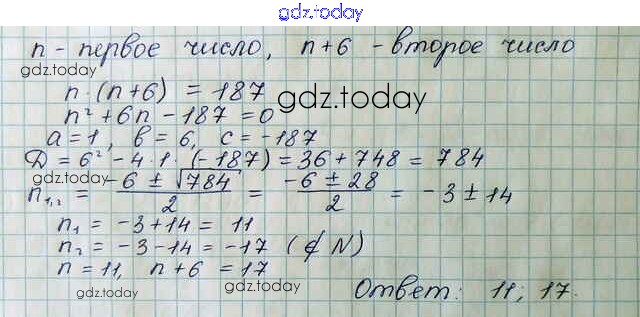 gdz.today
n - первое число, n+6 - второе число
gdz.today
n·(n+6) = 187
n² + 6n - 187 = 0 gdz.today
a = 1, b = 6, c = -187
D = 6² - 4·1·(-187) = 36 + 748 = 784
gdz.today
n₁,₂ = (-6 ± √784)/2 = (-6 ± 28)/2 = -3 ± 14
n₁ = -3+14 = 11
n₂ = -3-14 = -17 (∉ N)
n = 11, n+6 = 17
gdz.today gdz.today
Ответ: 11; 17.